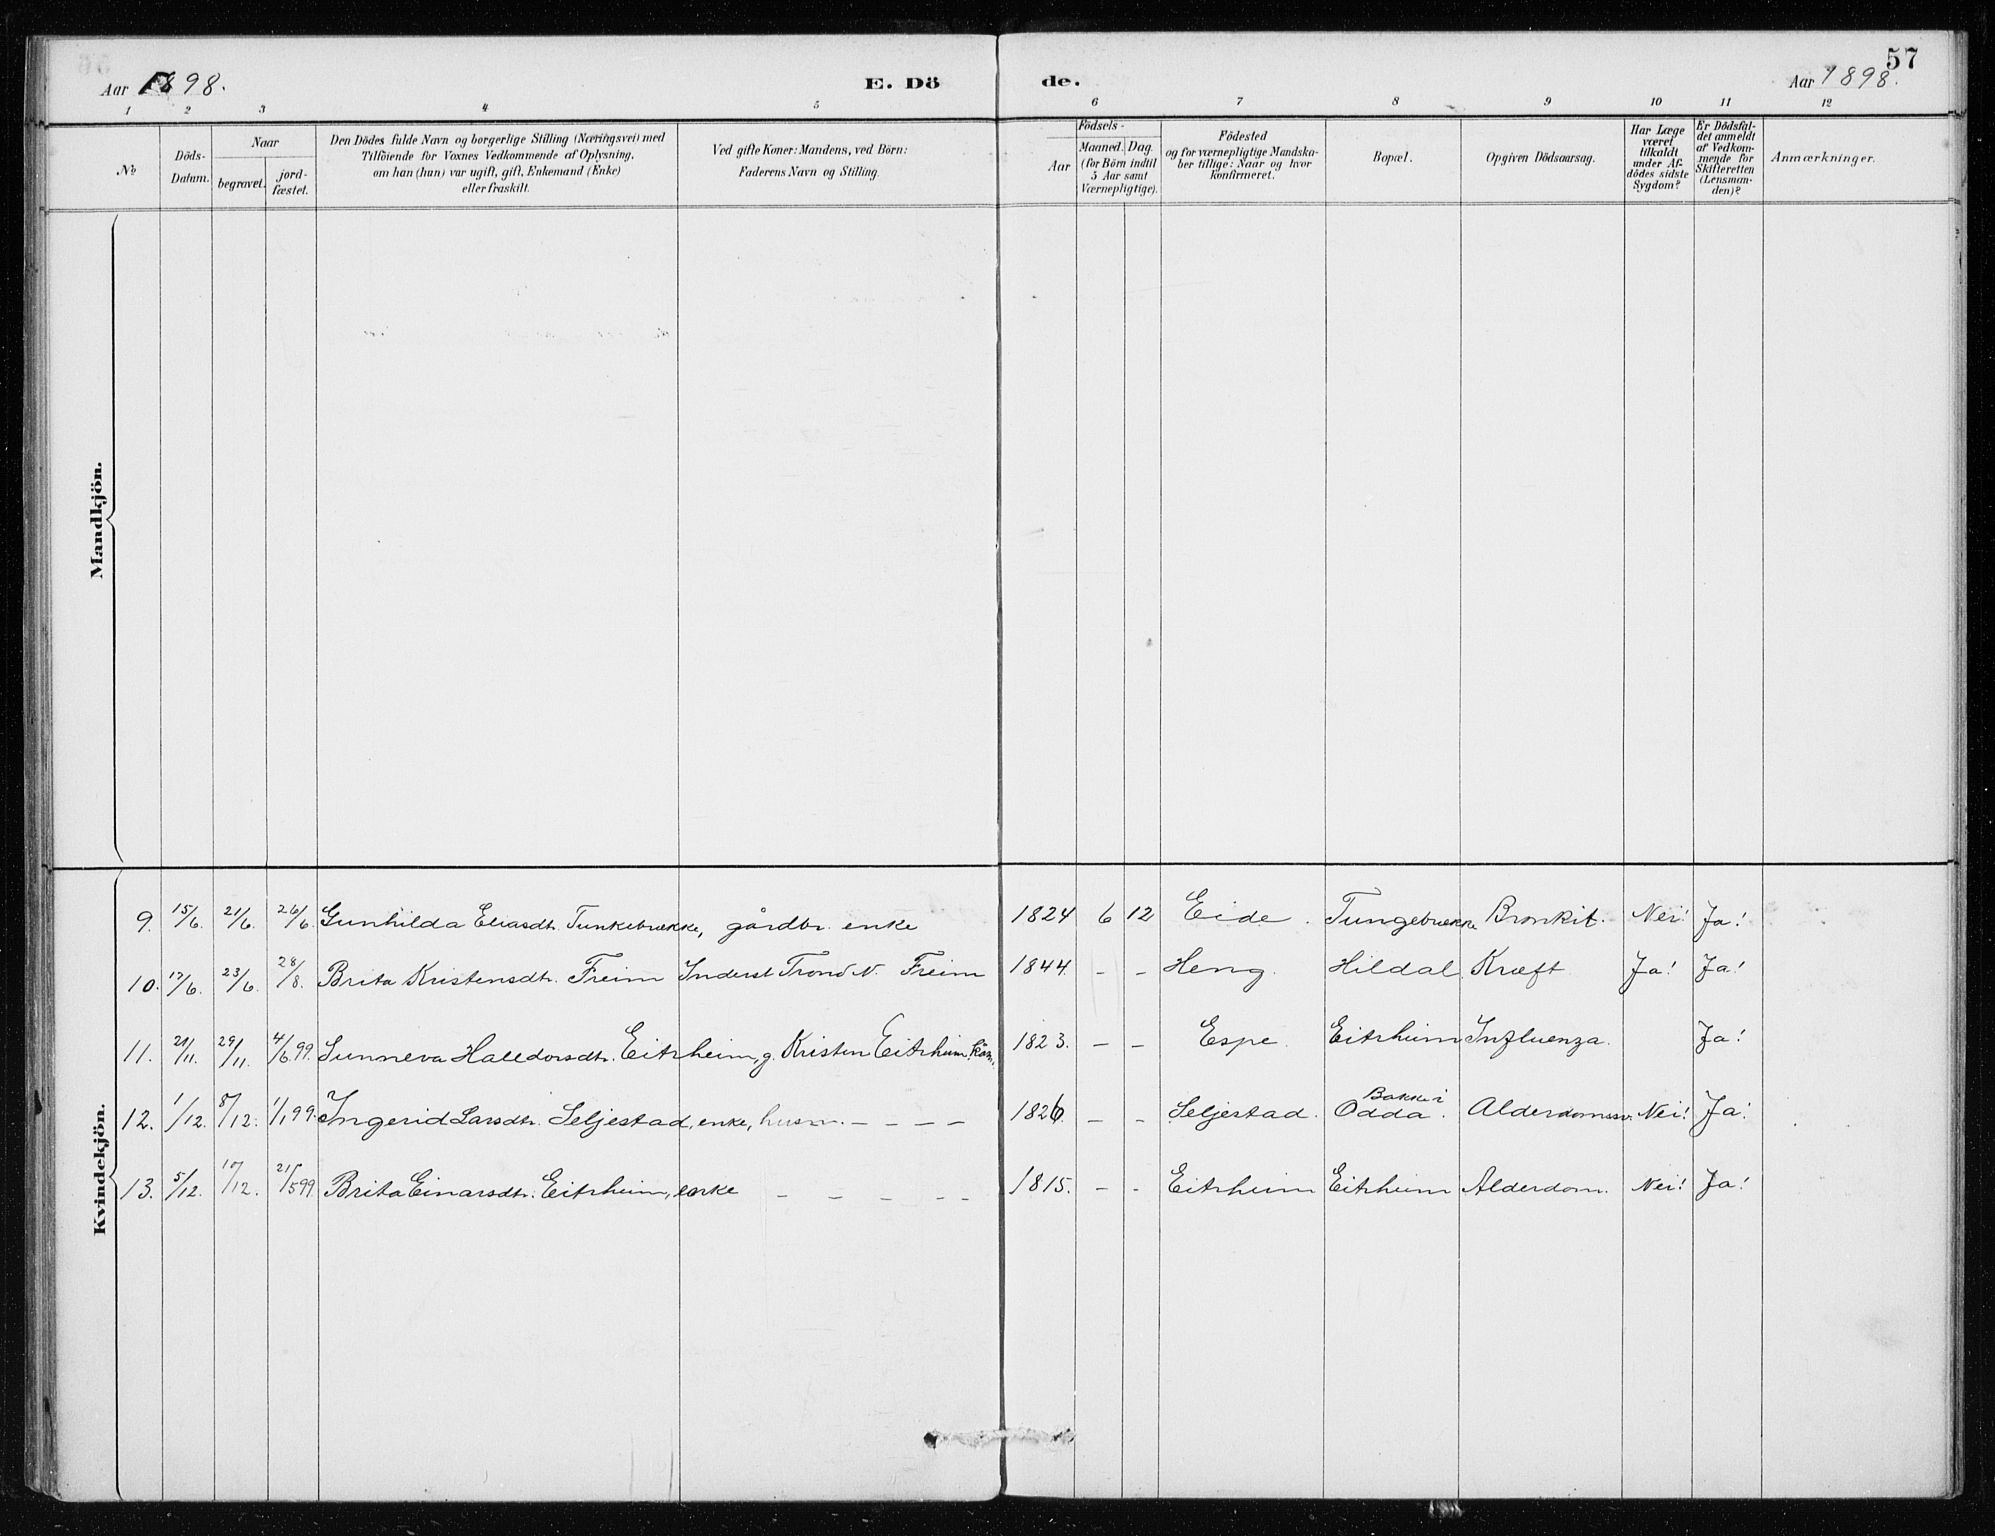 57
Aar 1898.
E. Döde.
Aar 1898.
1 2 3 4 5 6 7 8 9 10 11 12
No
Döds-Datum.
Naar
begravet.
jord-fæstet.
Den Dödes fulde Navn og borgerlige Stilling (Næringsvei) med
Tilföiende for Voxnes Vedkommende af Oplysning,
om han (hun) var ugift, gift, Enkemand (Enke)
eller fraskilt.
Ved gifte Koner: Mandens, ved Börn:
Faderens Navn og Stilling.
Födsels-
Aar
Maaned. Dag.
(for Börn indtil
5 Aar samt
Værnepligtige).
Födested
og for værnepligtige Mandska-
ber tillige: Naar og hvor
konfirmeret.
Bopæl.
Opgiven Dödsaarsag.
Har Læge
været
tilkaldt
under Af-
dödes sidste
Sygdom?
Er Dödsfal-
det anmeldt
af Vedkom-
mende for
Skifteretten
(Lensman-
den)?
Anmærkninger.
Mandkjön.
Kvindekjön.
9. 15/6. 21/6. 26/6. Gunhilda Eliasdtr. Tunkebrække, gårdbr. enke 1824 6 12 Eide. Tungebrække Bronkit. Nei! Ja!
10. 17/6. 23/6. 28/8. Brita Kristensdtr. Freim Inderst Trond N. Freim 1844. - - Heng. Hildal. Kræft Ja! Ja!
11. 21/11. 29/11. 4/6 99. Sunneva Halldorsdtr. Eitrheim, g. Kristen Eitrheim 1823. - - Espe. Eitrheim Influenza. Ja!
12. 1/12. 8/12. 1/1 99. Ingerid Larsdtr. Seljestad, enke, husm. - - - - 1826. - - Seljestad. Bakke i Odda. Alderdomssv. Nei! Ja!
13. 5/12. 10/12. 21/5 99. Brita Einarsdtr. Eitrheim, enke - - - - - 1815. - - Eitrheim Eitrheim Alderdom. Nei! Ja!